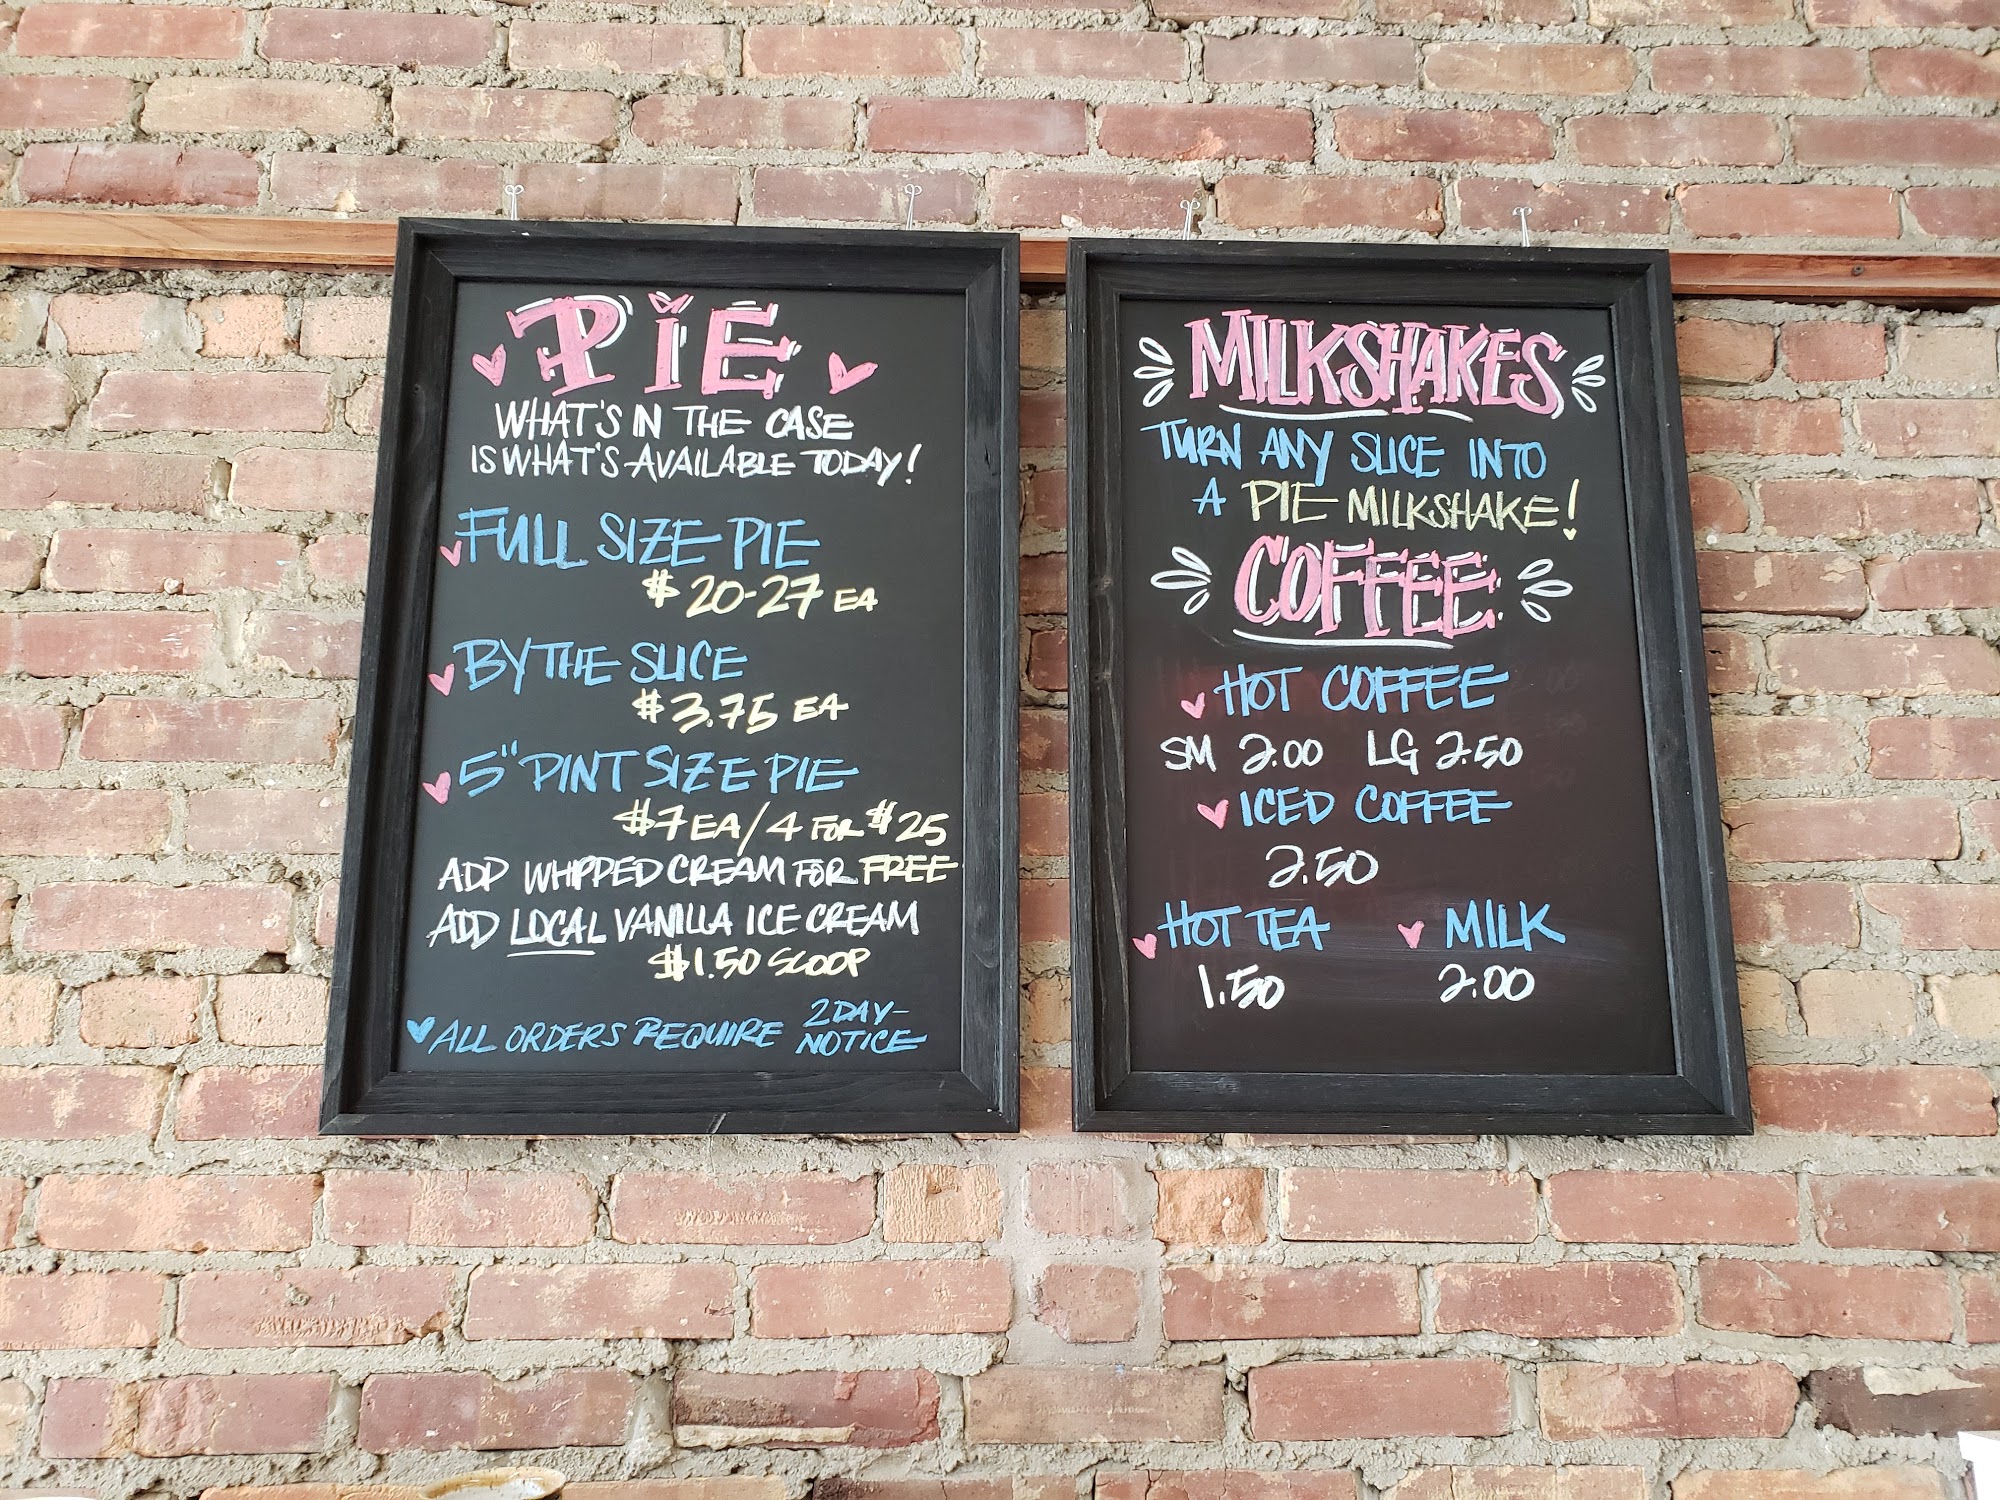 PIE
WHAT'S IN THE CASE
IS WHAT'S AVAILABLE TODAY!
FULL SIZE PIE
$20-27 EA
BY THE SLICE
$3.75 EA
5" PINT SIZE PIE
$7 EA/4 FOR $25
ADD WHIPPED CREAM FOR FREE
ADD LOCAL VANILLA ICE CREAM
$1.50 SCOOP
ALL ORDERS REQUIRE 2 DAY-
NOTICE
MILKSHAKES
TURN ANY SLICE INTO
A PIE MILKSHAKE!
COFFEE
HOT COFFEE
SM 2.00 LG 2.50
ICED COFFEE
2.50
HOT TEA MILK
1.50 2.00